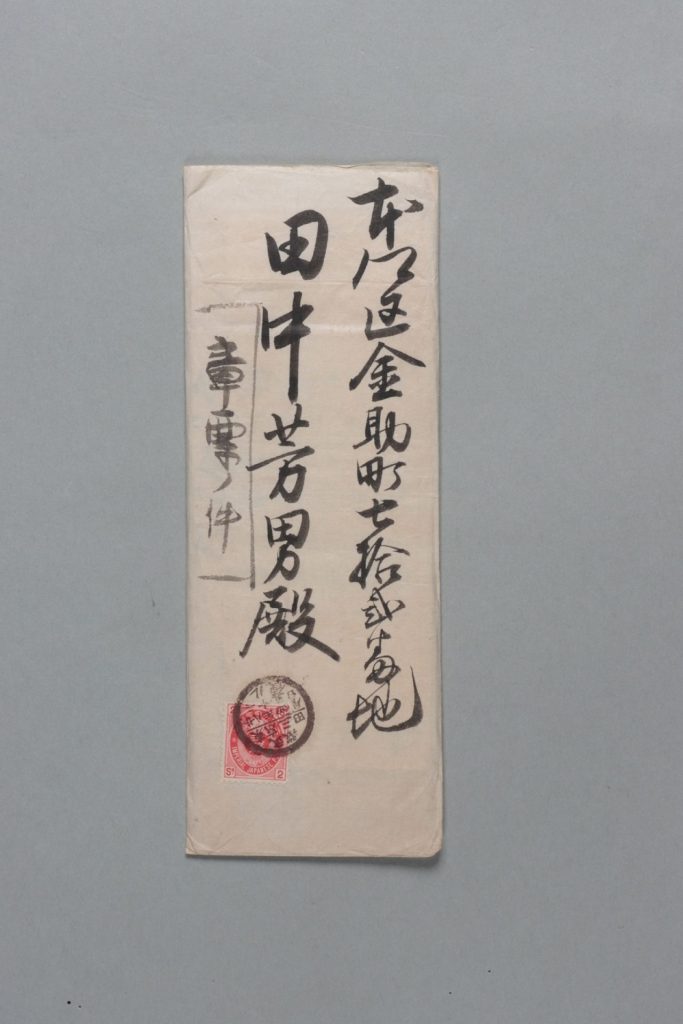 本郷区金助町七拾弐番地
田中芳男殿
章票ノ件
IMPERIAL JAPANESE
Sⁿ 2